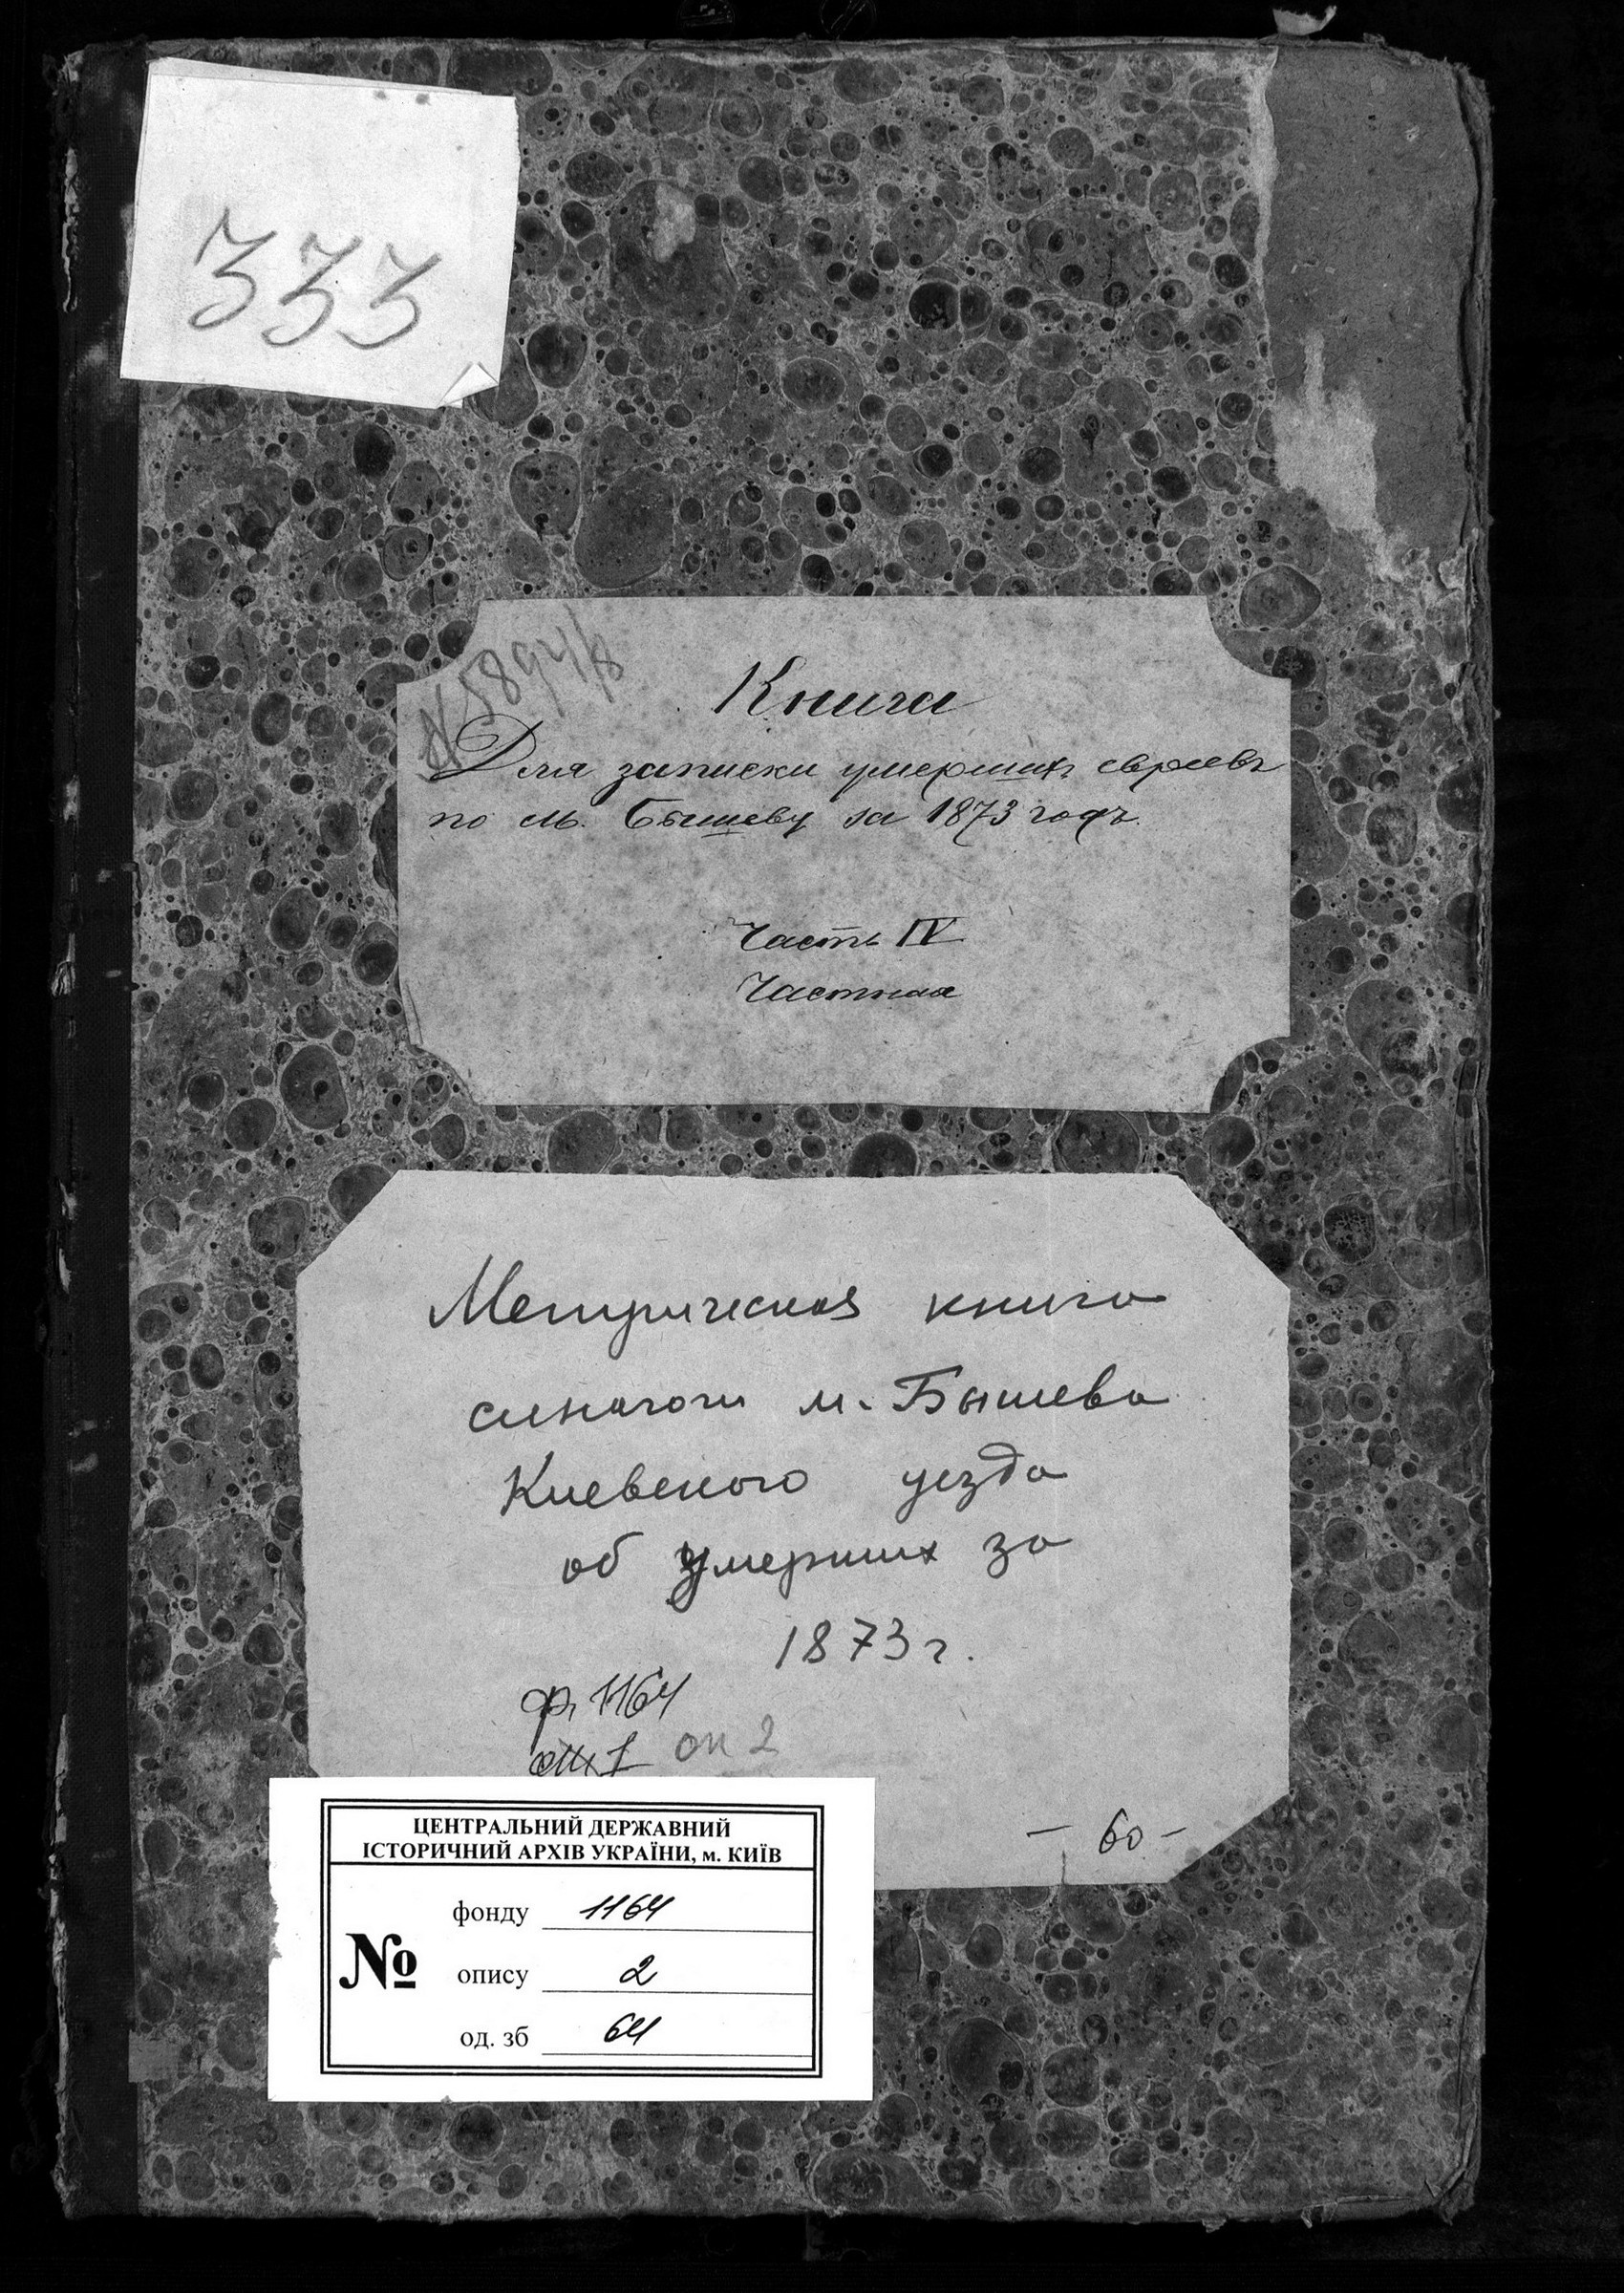 333
№ 5894/8
Книга
Для записки умершихъ евреевъ
по м. Бышеву за 1873 годъ.
Часть IV
Частная
Метрическая книга
синагоги м. Бышева
Киевского уезда
об умерших за
1873 г.
ф. 1164
оп. 1 оп 2
- 60 -
ЦЕНТРАЛЬНИЙ ДЕРЖАВНИЙ
ІСТОРИЧНИЙ АРХІВ УКРАЇНИ, м. КИЇВ
№
фонду 1164
опису 2
од. зб 64